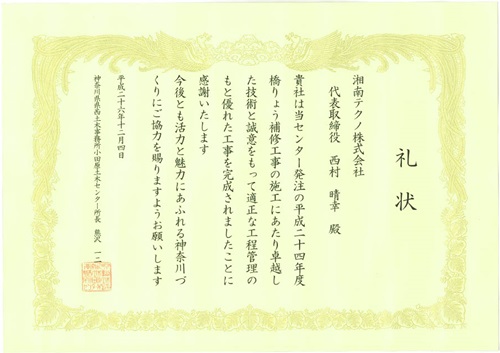 礼状
湘南テクノ株式会社
代表取締役 西村 晴幸 殿
貴社は当センター発注の平成二十四年度
橋りょう補修工事の施工にあたり卓越し
た技術と誠意をもって適正な工程管理の
もと優れた工事を完成されましたことに
感謝いたします
今後とも活力と魅力にあふれる神奈川づ
くりにご協力を賜りますようお願いします
平成二十六年十二月四日
神奈川県県西土木事務所小田原土木センター所長 熊沢 一二